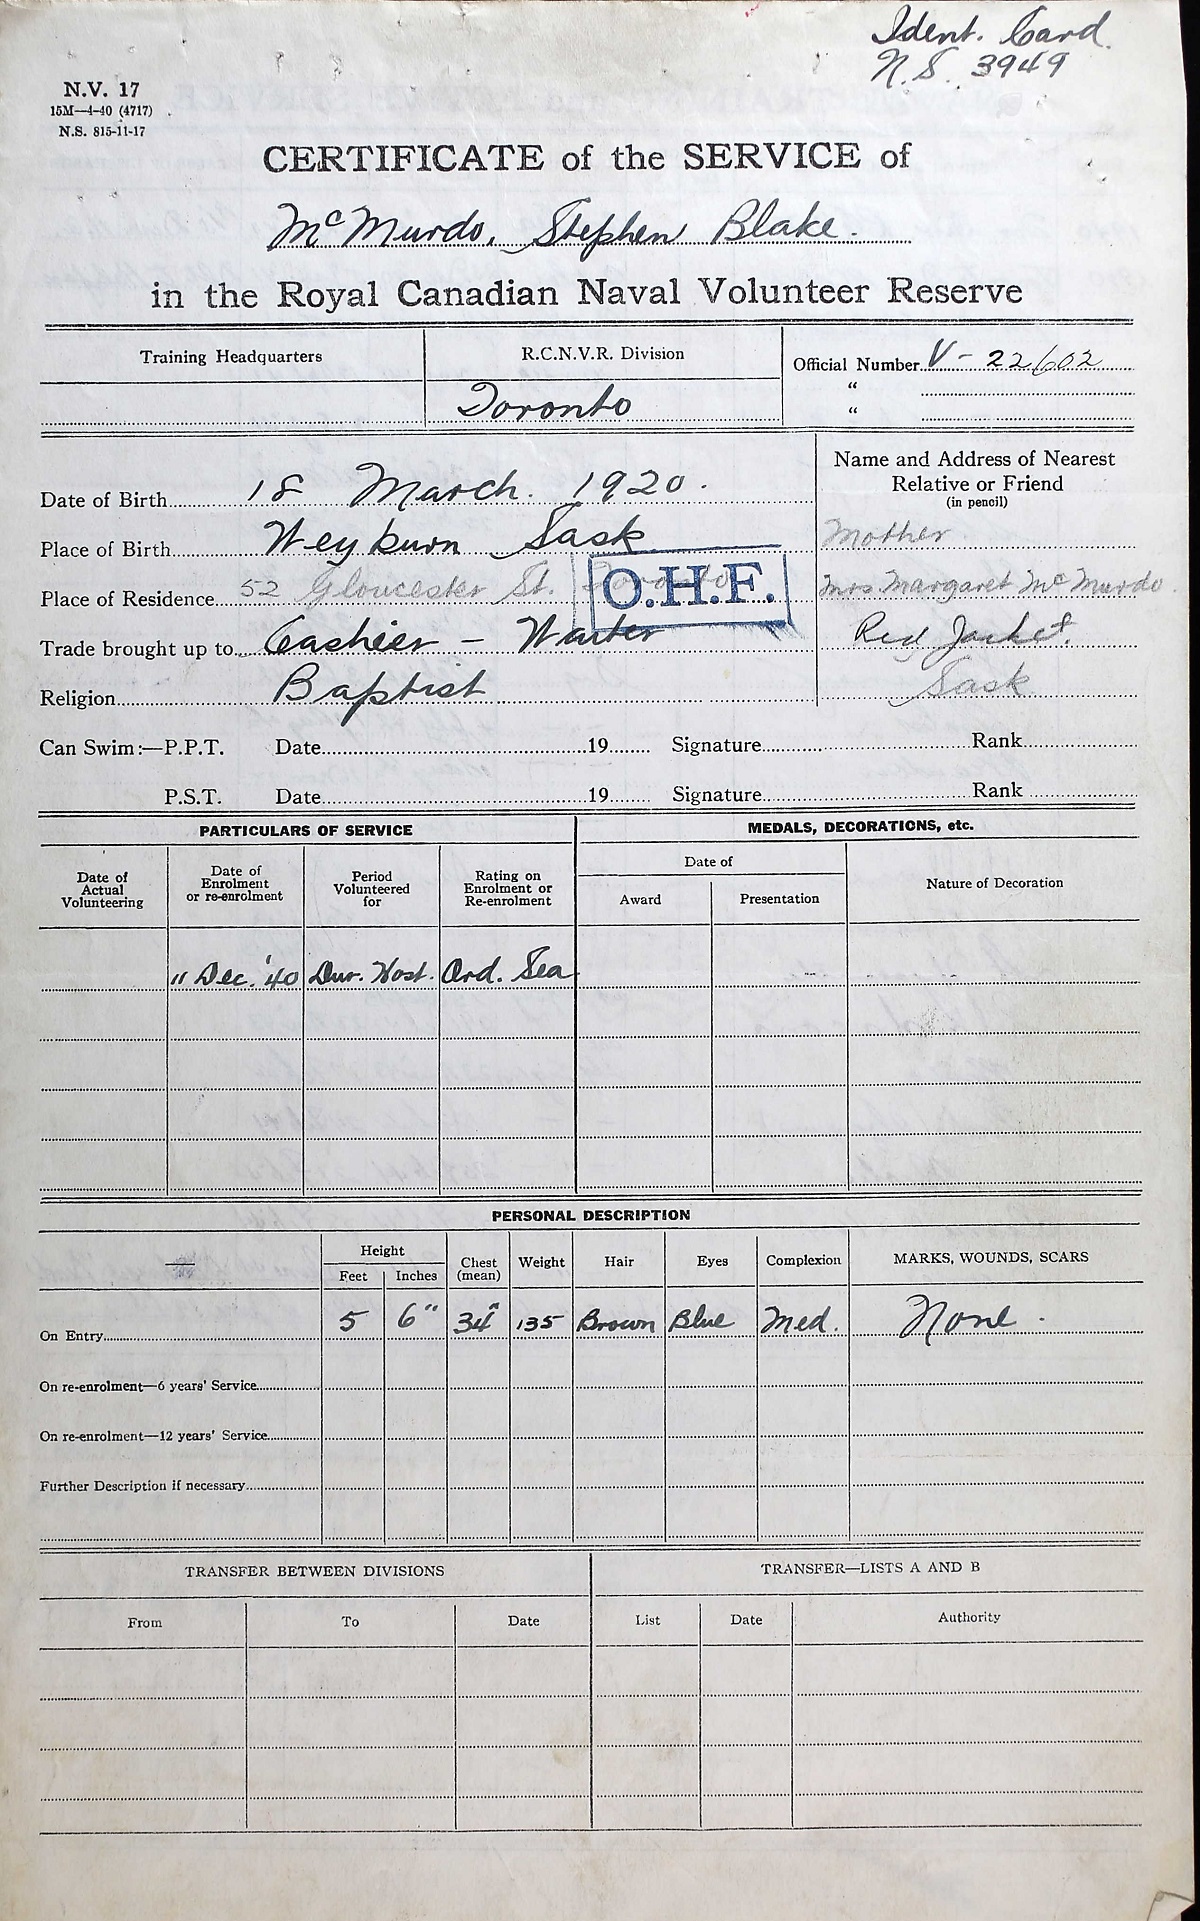 Ident. Card.
N.S. 3949
N.V. 17
15M—4-40 (4717)
N.S. 815-11-17
CERTIFICATE of the SERVICE of
McMurdo, Stephen Blake.
in the Royal Canadian Naval Volunteer Reserve
Training Headquarters
R.C.N.V.R. Division
Toronto
Official Number V-22602
"
"
Date of Birth 18 March. 1920.
Place of Birth Weyburn Sask
Place of Residence 52 Gloucester St. Toronto
O.H.F.
Trade brought up to Cashier - Waiter
Religion Baptist
Name and Address of Nearest
Relative or Friend
(in pencil)
Mother
Mrs. Margaret McMurdo
Red Jacket.
Sask
Can Swim:—P.P.T. Date 19 Signature Rank
P.S.T. Date 19 Signature Rank
PARTICULARS OF SERVICE
MEDALS, DECORATIONS, etc.
Date of
Actual
Volunteering
Date of
Enrolment
or re-enrolment
Period
Volunteered
for
Rating on
Enrolment or
Re-enrolment
Date of
Award
Presentation
Nature of Decoration
11 Dec. '40 Dur. Host. Ord. Sea
PERSONAL DESCRIPTION
Height
Feet Inches
Chest
(mean)
Weight
Hair
Eyes
Complexion
MARKS, WOUNDS, SCARS
On Entry 5 6" 34" 135 Brown Blue Med. None.
On re-enrolment—6 years' Service
On re-enrolment—12 years' Service
Further Description if necessary
TRANSFER BETWEEN DIVISIONS
TRANSFER—LISTS A AND B
From To Date List Date Authority